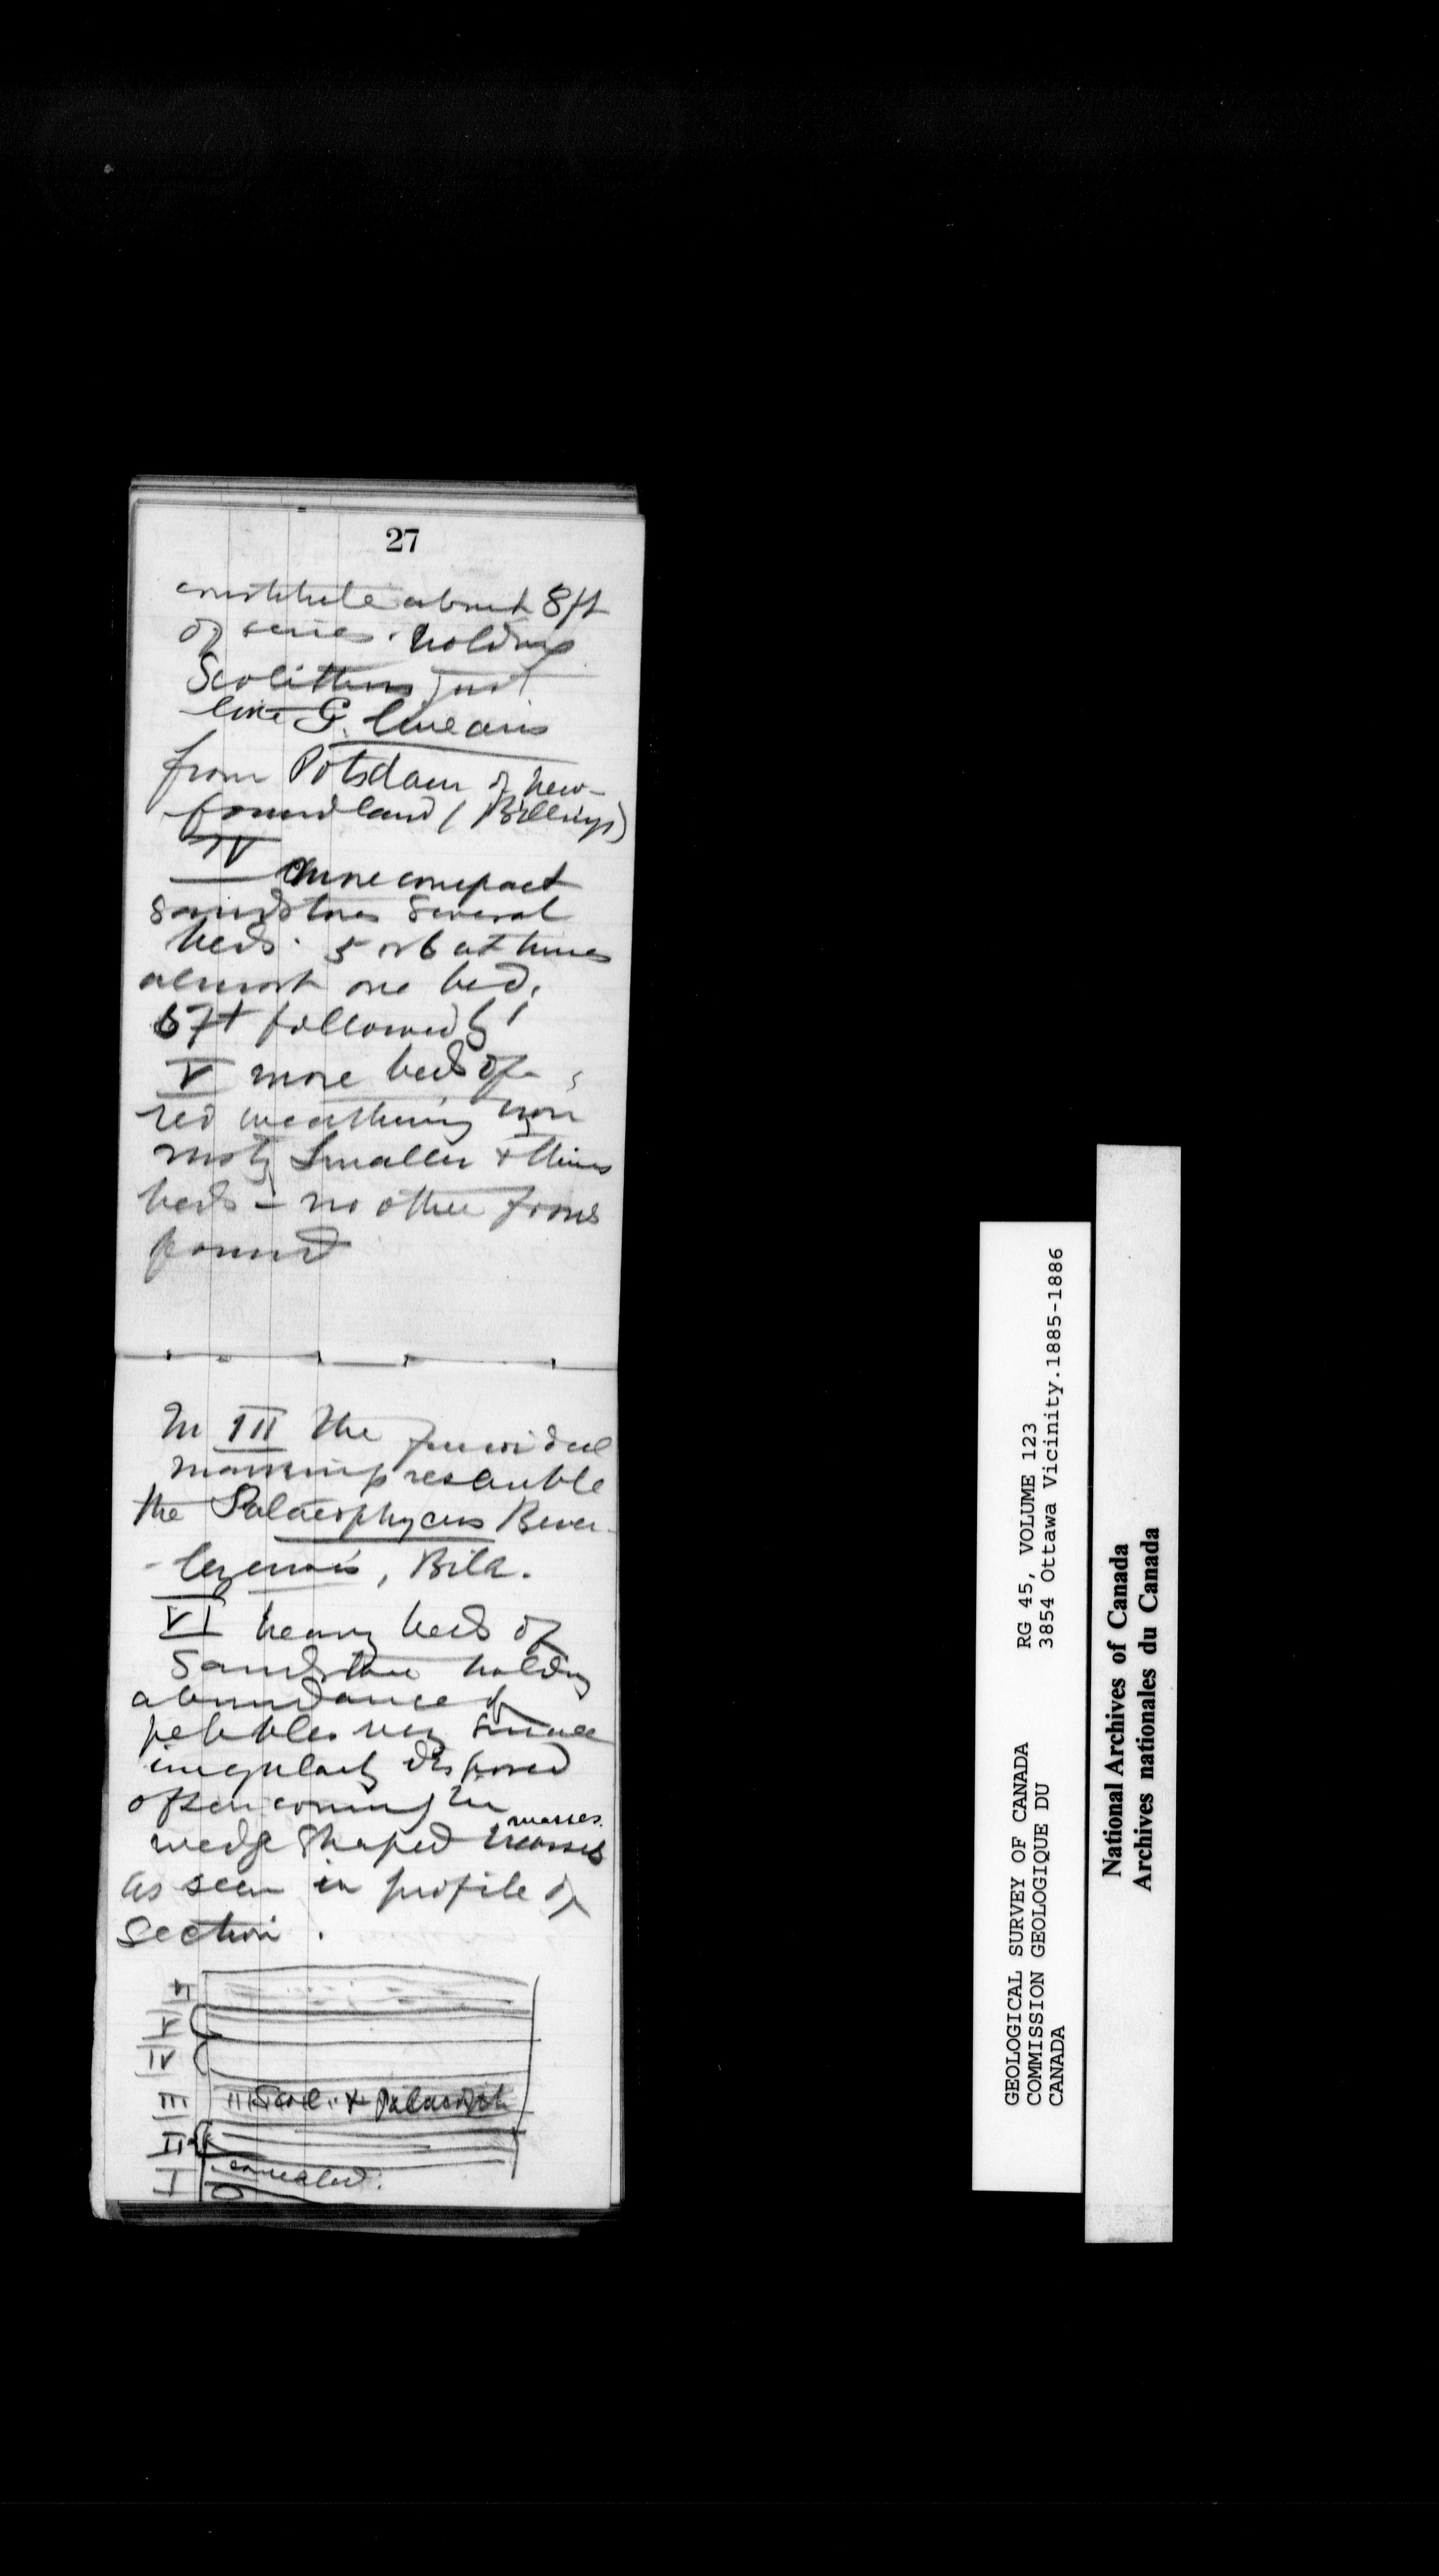 27
constitute about 8 ft
of series. holding
Scolithus just
like S. linearis
from Potsdam of New-
foundland (Billings)
IV
more compact
sandstones several
beds. 5 or 6 at times
almost one bed.
6 ft followed by
V more beds of
red weathering iron
rusty smaller + thin
beds - no other forms
found
In III the fucoidal
markings resemble
the Palaeophycus Bever-
-leyensis, Bill.
VI heavy beds of
Sandstone holding
abundance of
pebbles very small
irregularly disposed
often coming in
masses.
wedge shaped masses
as seen in profile of
Section.
V
IV
III Scol. + Palaeoph
II
I concealed.
GEOLOGICAL SURVEY OF CANADA RG 45, VOLUME 123
COMMISSION GEOLOGIQUE DU 3854 Ottawa Vicinity.1885-1886
CANADA
National Archives of Canada
Archives nationales du Canada